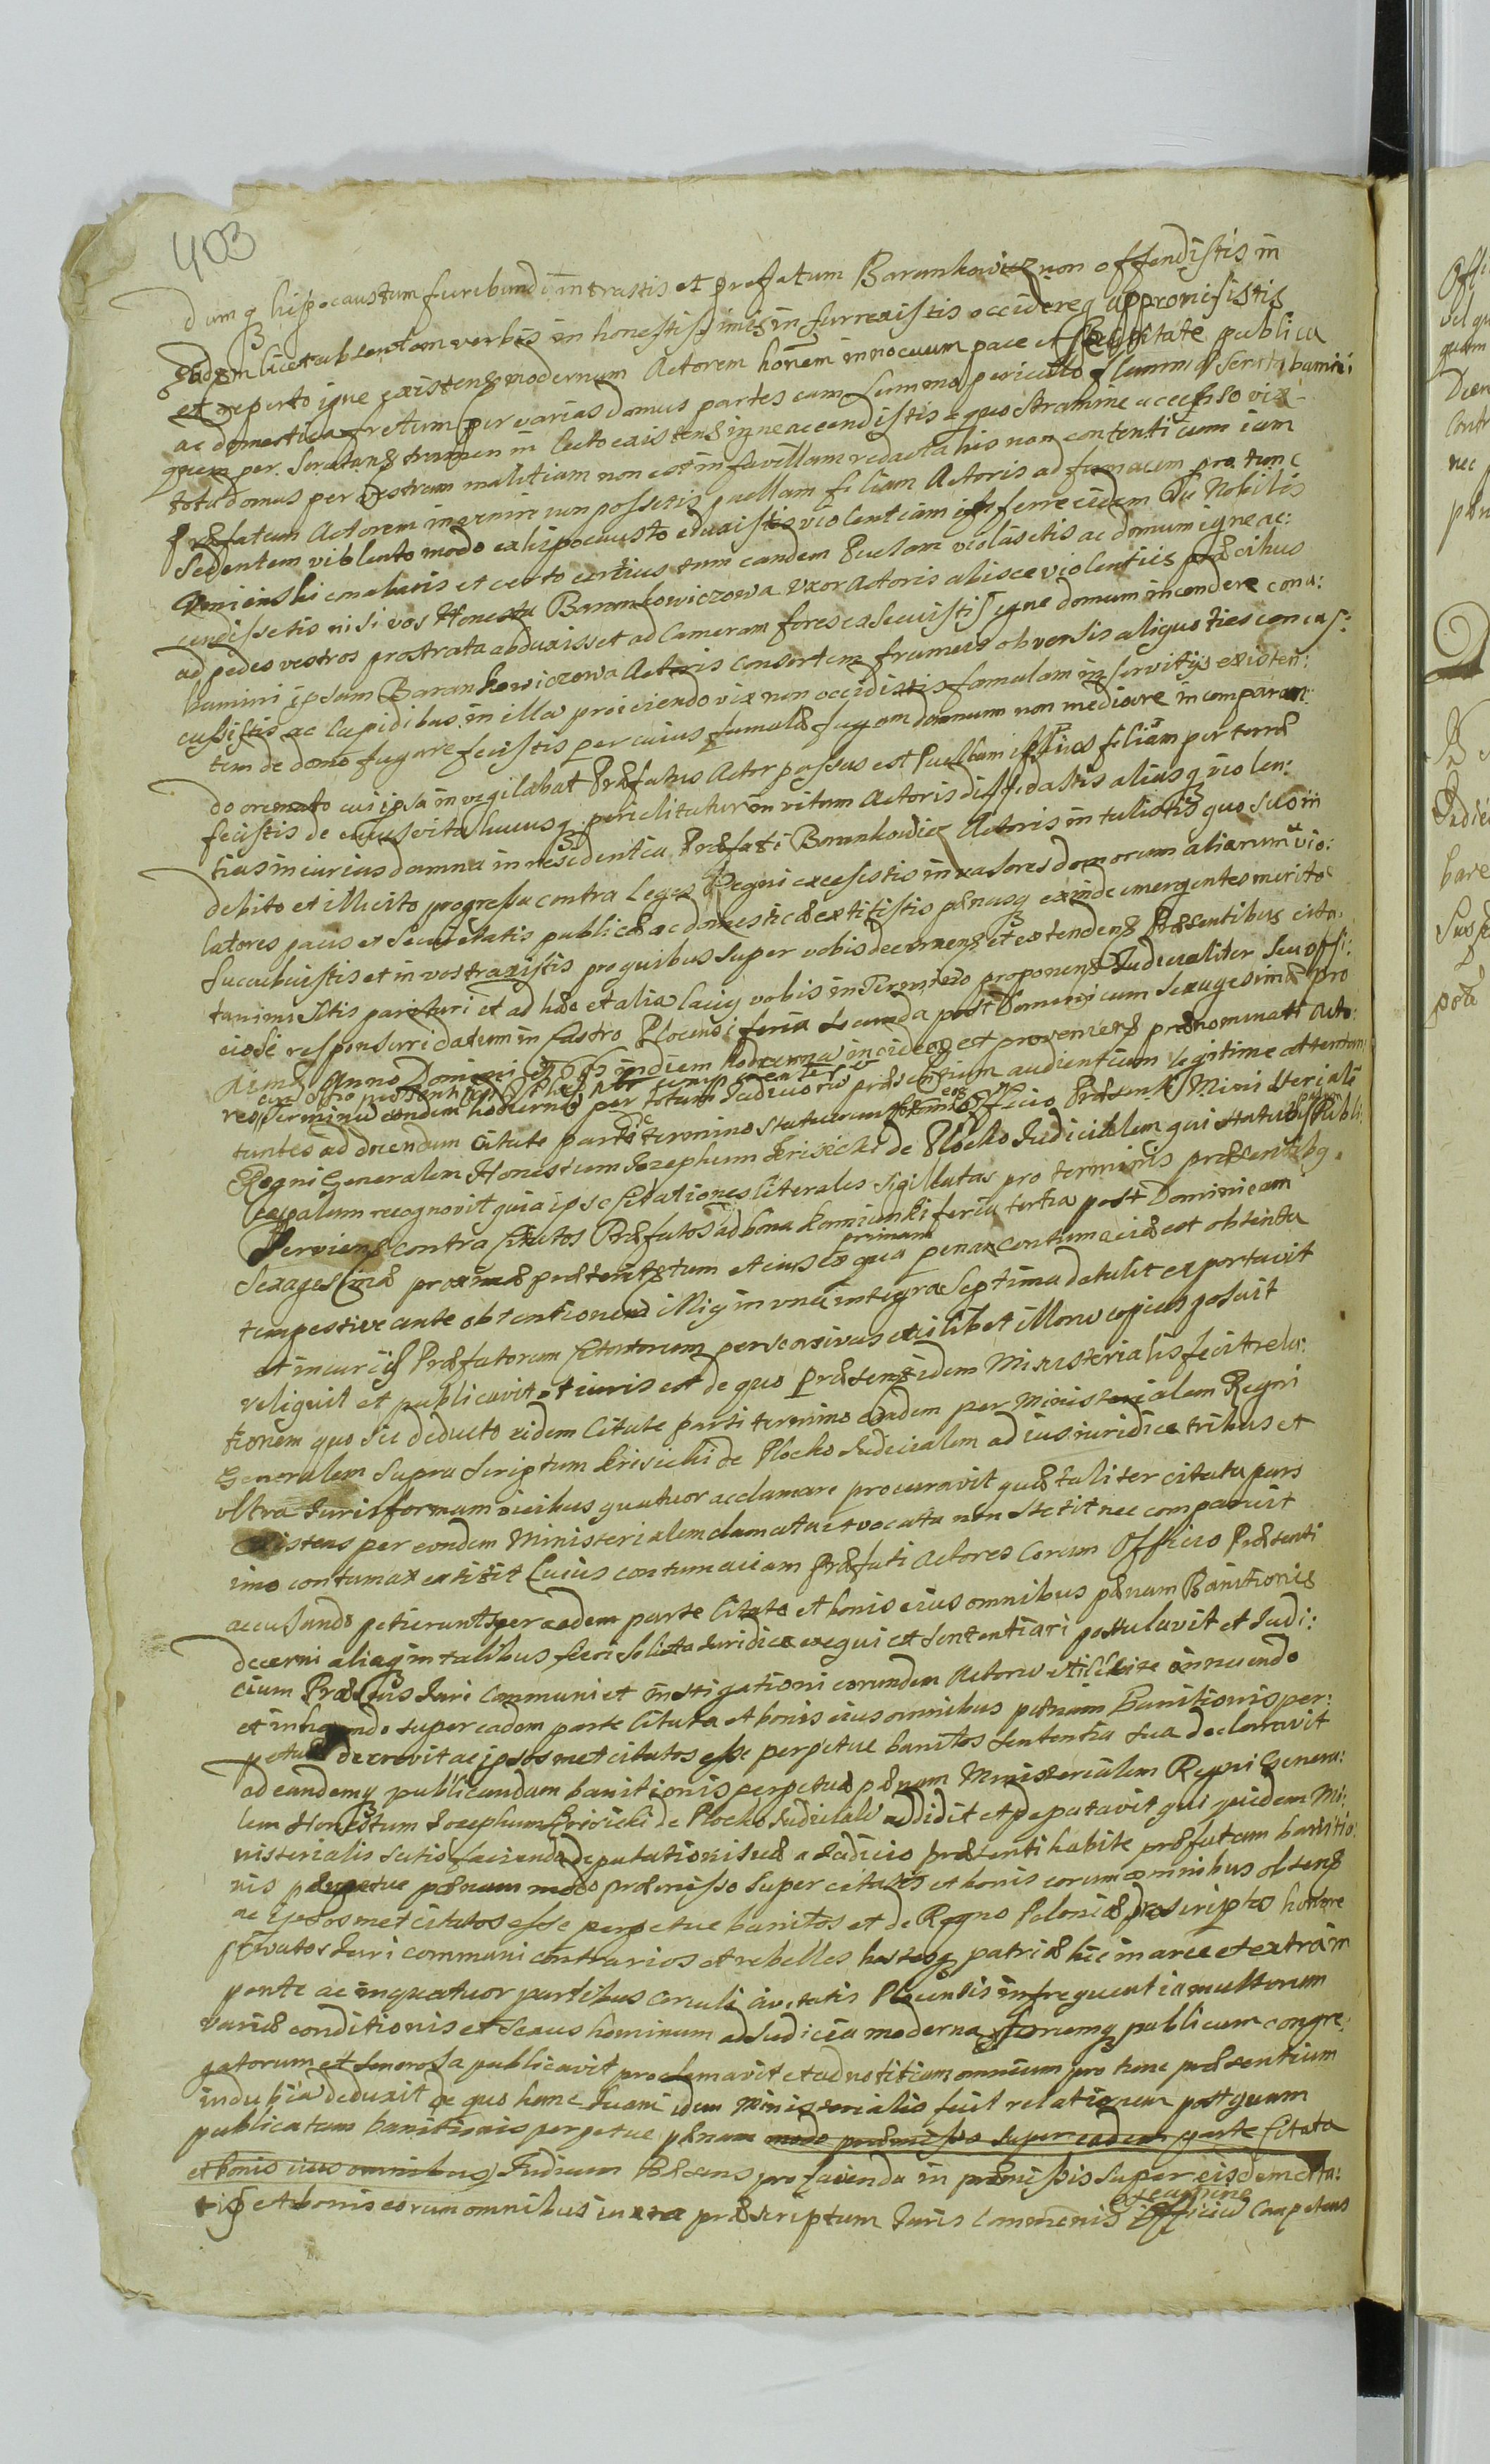 403
dumq hipocaustum furibundi intrastis et prefatum Barankowicz non offendistis in
Eadem licet absentem verbis in honestissimis insurrexistis occidereq appromisistis
et reperto igne existens modernum Actorem honem innocuum pace et securitate publica
ac domestica fretum per varias domus partes cum summo periculo
quem per tamen in luto existens igne accendistis e quo stramine accenso vix
tota domus per vestram malitiam non est in favillam redacta his non contenti cum iam
Præfatum Actorem invenire non possetis puellam filiam Actoris ad fornacem pro tunc
Sedentem violento modo ex hipocausto eduxistis violentiam inferre eidem Tu Nobilis
Kamienski conabaris et certo certius tum eandem Puellam violasetis ac domum igne ac:
cendissetis nisi vos Honesta Barankowiczowa Uxor Actoris a lisce violentiis præcibus
ad pedes vestros prostrata abduxisset ad Cameram fores exsecuistis igne domum incendere cona:
bamini ipsam Barankowiczowa Actoris Consortem frameis obversis aliquoties concus:
cussistis ac lapidibus in illa proiiciendo vix non occidistis famulam in servitiis existen:
tem de domo fugare fecistis per cuius famulæ fugam damnum non mediocre in comparan:
do cremato cui ipsa invigilabat Præfatus Actor passus est Puellam ipsius filiam perterre
fecistis de cuius vita hucusq periclitatur in vitam Actoris diffidastis aliasq violen:
tias iniurias damna in residentia Præfati Barankowicz Actoris intulistis quo suo in
debito et illicito progressu contra Leges Regni excessistis invasores domorum aliarum vio:
latores pacis et Securitatis publicæ ac domesticæ extitistis pœnasq exinde emergentes merito
succubuistis et in vos traxistis pro quibus super vobis decernens et extendens Præsentibus cita:
tanimi sitis parituri et ad hæc et alia laciq vobis in Termino proponens Judicialiter seu offi:
ciose responsuri datum in Castro Plocensi feria secunda post Dominicam Sexagesimæ pro
Anno Domini in diem hodierna incidens est proveniens prænominati Acto:
reo Termino eodem hodierno per totum Judiciorum præsentium audientiam legitime attentan:
tantes ad docendum Citatæ parti terminos statuerunt Officio Præsenti Ministeriale
Regni Generalem Honestum Josephum Krisicki de Plocko Judicialem qui statutus Publi:
ce palam recognovit quia ipse Citationes literales sigillatas pro terminis præsentibq.
Serviens contra Citatos Præfatos ad bona Kamienki feria tertia post Dominicam
Sexagesimæ proximæ præteritæ tum et eius ex qua primam penæ contumaciæ est obtenta
tempestive ante obtentionem illiq in una integra septimana detulit exportavit
et in curiis Præfatorum Citatorum personivas et ilibet illorum copias posuit
reliquit et publicavit ut iuris est de quo Præsens idem Ministerialis fecit rela:
tionem quo sic deducto eidem Citatæ parti termino eodem per Ministerialem Regni
Generalem Supra Scriptum Krisicki de Plocko Judicialem ad ius iuridice tribus et
ultra Juris formam vicibus quatuor acclamare procuravit quæ taliter citata pars
existens per eundem Ministerialem clamata et vocata non stetit nec comparuit
imo contumax extitit Cuius contumaciam Præfati Actores Coram Officio Præsenti
accusando petierunt super eadem parte Citata et bonis eius omnibus pœnam Banitionis
decerni aliaq in talibus fieri solita Juridice exequi et sententiari postulavit et Judi:
cium Præsens Juri Communi et instigationi eorundem Actorum annuendo
et inhærendo super eadem parte Citata et bonis eius omnibus pœnam Banitionis per:
petuæ decrevit ac ipsosmet citatos esse perpetue banitos sententia sua declaravit
ad eandemq publicandam banitionis perpetuæ pœnam Ministerialem Regni Genera:
lem Honestum Josephum Krisicki de Plocko Judicialem addidit et deputavit qui quidem Mi:
nisterialis satis faciendo deputationi suæ a Judicio præsenti habite præfatam banitio:
nis perpetue pœnam modo præmisso super citatis et bonis eorum omnibus obtens
ac ipsosmet citatos esse perpetue banitos et de Regno Poloniæ proscriptos honore
privatos Juri communi contrarios et rebelles hostesq patriæ hic in arce et extra in
ponte ac in quatuor partibus circuli civitatis Plocensis in frequentia multorum
variæ conditionis et sexus hominum ad Judicia moderna forumq publicum congre:
gatorum et sonorosa publicavit proclamavit et ad notitiam omnium pro tunc præsentium
indubia deduxit de quo hanc suam idem Ministerialis fecit relationem post quam
publicatam banitionis perpetue pœnam modo præmisso super eadem parte Citata
et bonis eius omnibus Judicium Præsens pro facienda in præmissis super eisdem cita:
tis et bonis eorum omnibus iuxta præscriptum Juris Communis examine Officium Competens